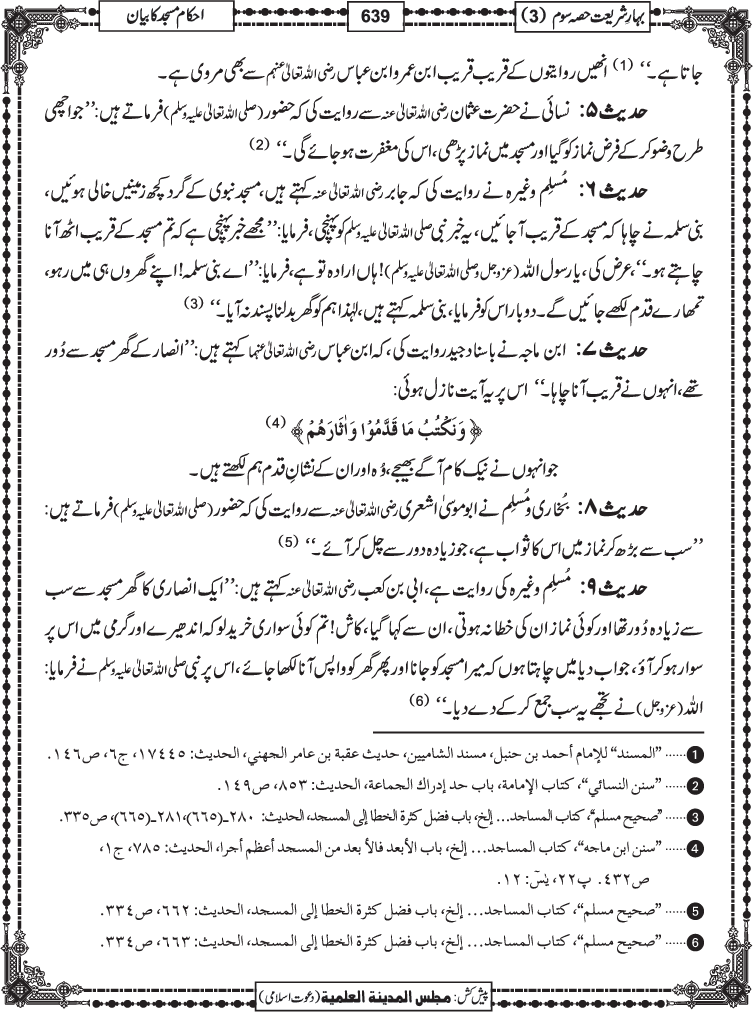 بہارِ شریعت حصہ سوم (3)
639
احکامِ مسجد کا بیان
جاتا ہے۔‘‘ (1) انھیں روایتوں کے قریب قریب ابن عمرو ابن عباس رضی اللہ تعالٰی عنہم سے بھی مروی ہے۔
حدیث ۵: نسائی نے حضرت عثمان رضی اللہ تعالٰی عنہ سے روایت کی کہ حضور (صلی اللہ تعالٰی علیہ وسلم) فرماتے ہیں: ’’جو اچھی
طرح وضو کر کے فرض نماز کو گیا اور مسجد میں نماز پڑھی، اس کی مغفرت ہو جائے گی۔‘‘ (2)
حدیث ۶: مُسلِم وغیرہ نے روایت کی کہ جابر رضی اللہ تعالٰی عنہ کہتے ہیں، مسجد نبوی کے گرد کچھ زمینیں خالی ہوئیں،
بنی سلمہ نے چاہا کہ مسجد کے قریب آجائیں، یہ خبر نبی صلی اللہ تعالٰی علیہ وسلم کو پہنچی، فرمایا: ’’مجھے خبر پہنچی ہے کہ تم مسجد کے قریب اٹھ آنا
چاہتے ہو۔‘‘، عرض کی، یا رسول اللہ (عزوجل و صلی اللہ تعالٰی علیہ وسلم)! ہاں ارادہ تو ہے، فرمایا: ’’اے بنی سلمہ! اپنے گھروں ہی میں رہو،
تمہارے قدم لکھے جائیں گے۔ دوبار اس کو فرمایا، بنی سلمہ کہتے ہیں، لہٰذا ہم کو گھر بدلنا پسند نہ آیا۔‘‘ (3)
حدیث ۷: ابن ماجہ نے باسناد جید روایت کی، کہ ابن عباس رضی اللہ تعالٰی عنہما کہتے ہیں: ’’انصار کے گھر مسجد سے دُور
تھے، انہوں نے قریب آنا چاہا۔‘‘ اس پر یہ آیت نازل ہوئی:
﴿ وَنَكْتُبُ مَا قَدَّمُوْا وَاٰثَارَهُمْ ﴾ (4)
جو انہوں نے نیک کام آگے بھیجے، وُہ اور ان کے نشانِ قدم ہم لکھتے ہیں۔
حدیث ۸: بُخاری و مُسلِم نے ابو موسیٰ اشعری رضی اللہ تعالٰی عنہ سے روایت کی کہ حضور (صلی اللہ تعالٰی علیہ وسلم) فرماتے ہیں:
’’سب سے بڑھ کر نماز میں اس کا ثواب ہے، جو زیادہ دور سے چل کر آئے۔‘‘ (5)
حدیث ۹: مُسلِم وغیرہ کی روایت ہے، ابی بن کعب رضی اللہ تعالٰی عنہ کہتے ہیں: ’’ایک انصاری کا گھر مسجد سے سب
سے زیادہ دُور تھا اور کوئی نماز ان کی خطا نہ ہوتی، ان سے کہا گیا، کاش! تم کوئی سواری خرید لو کہ اندھیرے اور گرمی میں اس پر
سوار ہو کر آؤ، جواب دیا میں چاہتا ہوں کہ میرا مسجد کو جانا اور پھر گھر کو واپس آنا لکھا جائے، اس پر نبی صلی اللہ تعالٰی علیہ وسلم نے فرمایا:
اللہ (عزوجل) نے تجھے یہ سب جمع کر کے دے دیا۔‘‘ (6)
1 ...... ”المسند“ للإمام أحمد بن حنبل، مسند الشاميين، حديث عقبة بن عامر الجهني، الحديث: ١٧٤٤٥، ج٦، ص١٤٦.
2 ...... ”سنن النسائي“، كتاب الإمامة، باب حد إدراك الجماعة، الحديث: ٨٥٣، ص١٤٩.
3 ...... ”صحيح مسلم“، كتاب المساجد... إلخ، باب فضل كثرة الخطا إلى المسجد، الحديث: ٢٨٠ـ(٦٦٥)، ٢٨١ـ(٦٦٥)، ص٣٣٥.
4 ...... ”سنن ابن ماجه“، كتاب المساجد... إلخ، باب الأبعد فالأ بعد من المسجد أعظم أجرا، الحديث: ٧٨٥، ج١،
ص٤٣٢. پ٢٢، يٰسٓ: ١٢.
5 ...... ”صحيح مسلم“، كتاب المساجد... إلخ، باب فضل كثرة الخطا إلى المسجد، الحديث: ٦٦٢، ص٣٣٤.
6 ...... ”صحيح مسلم“، كتاب المساجد... إلخ، باب فضل كثرة الخطا إلى المسجد، الحديث: ٦٦٣، ص٣٣٤.
پیش کش: مجلس المدینة العلمیة (دعوت اسلامی)